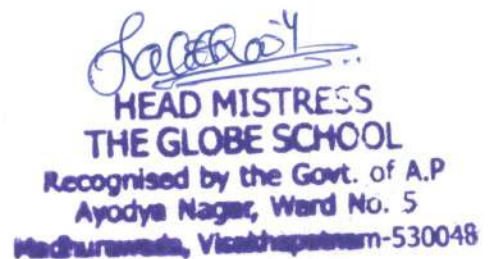 HEAD MISTRESS
THE GLOBE SCHOOL
Recognised by the Govt. of A.P
Ayodya Nagar, Ward No. 5
Madhurawada, Visakhapatnam-530048